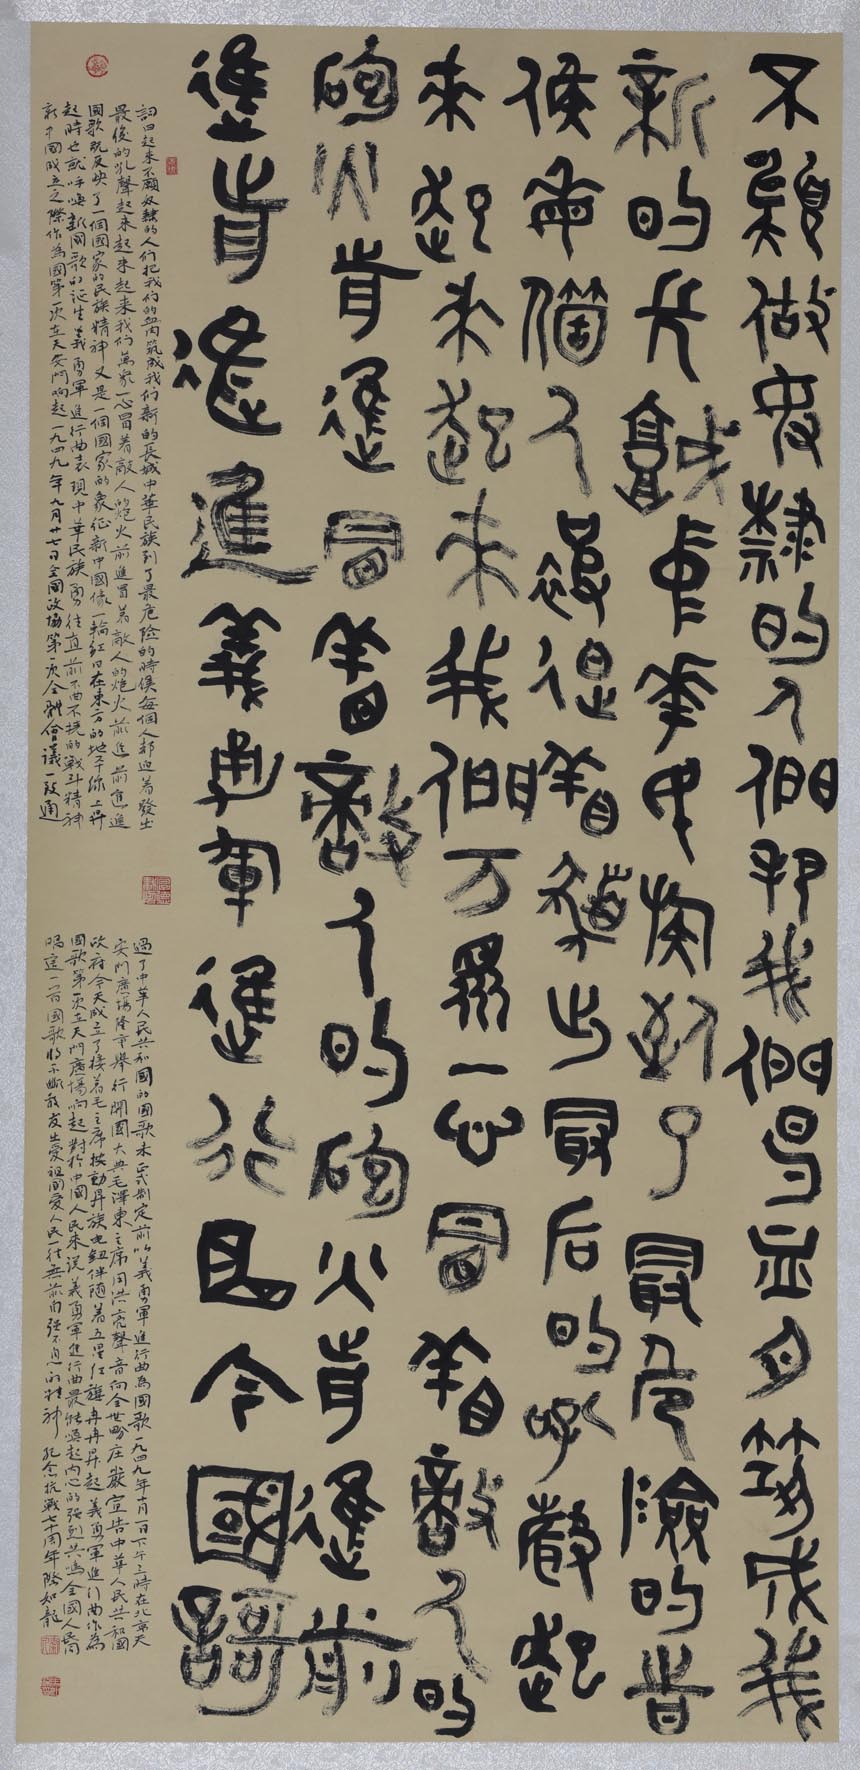 不願做奴隸的人們把我們的血肉築成我
新的長城中華民族到了最危險的時
候每個人被迫着發出最后的吼聲起
來起來起來我們万眾一心冒着敵人的
砲火前進冒着敵人的砲火前進前
進前進進義勇軍進行曲今國歌
詞曰起來不願奴隸的人们把我们的血肉築成我们新的長城中華民族到了最危險的時候每個人都迫着發出
最後的吼聲起來起來起來我们萬衆一心冒着敵人的炮火前進冒着敵人的炮火前進前進進
國歌既反映了一個國家的民族精神又是一個國家的象征新中國像一輪紅日在東方的地平綫上昇
起時也就呼喚新國歌的誕生義勇軍進行曲表現中華民族勇往直前不屈不撓的戰斗精神
新中國成立之際作為國第一次在天安門响起一九四九年九月廿七日全國政協第一次全體會議一致通
過了中華人民共和國的國歌未正式制定前以義勇軍進行曲為國歌一九四九年十月一日下午三時在北京天
安門廣場隆重舉行開國大典毛澤東主席用洪亮聲音向全世界庄嚴宣告中華人民共和國
政府今天成立了接着毛主席按動昇旗電鈕伴随着五星红旗冉冉昇起義勇軍進行曲作為
國歌第一次在天門廣場响起對於中國人民來説義勇軍進行曲最能喚起内心的强烈共鳴全國人民同
唱這一首國歌將不斷激发出愛祖國愛人民一往無前自强不息的精神 紀念抗戰七十周年 如龍